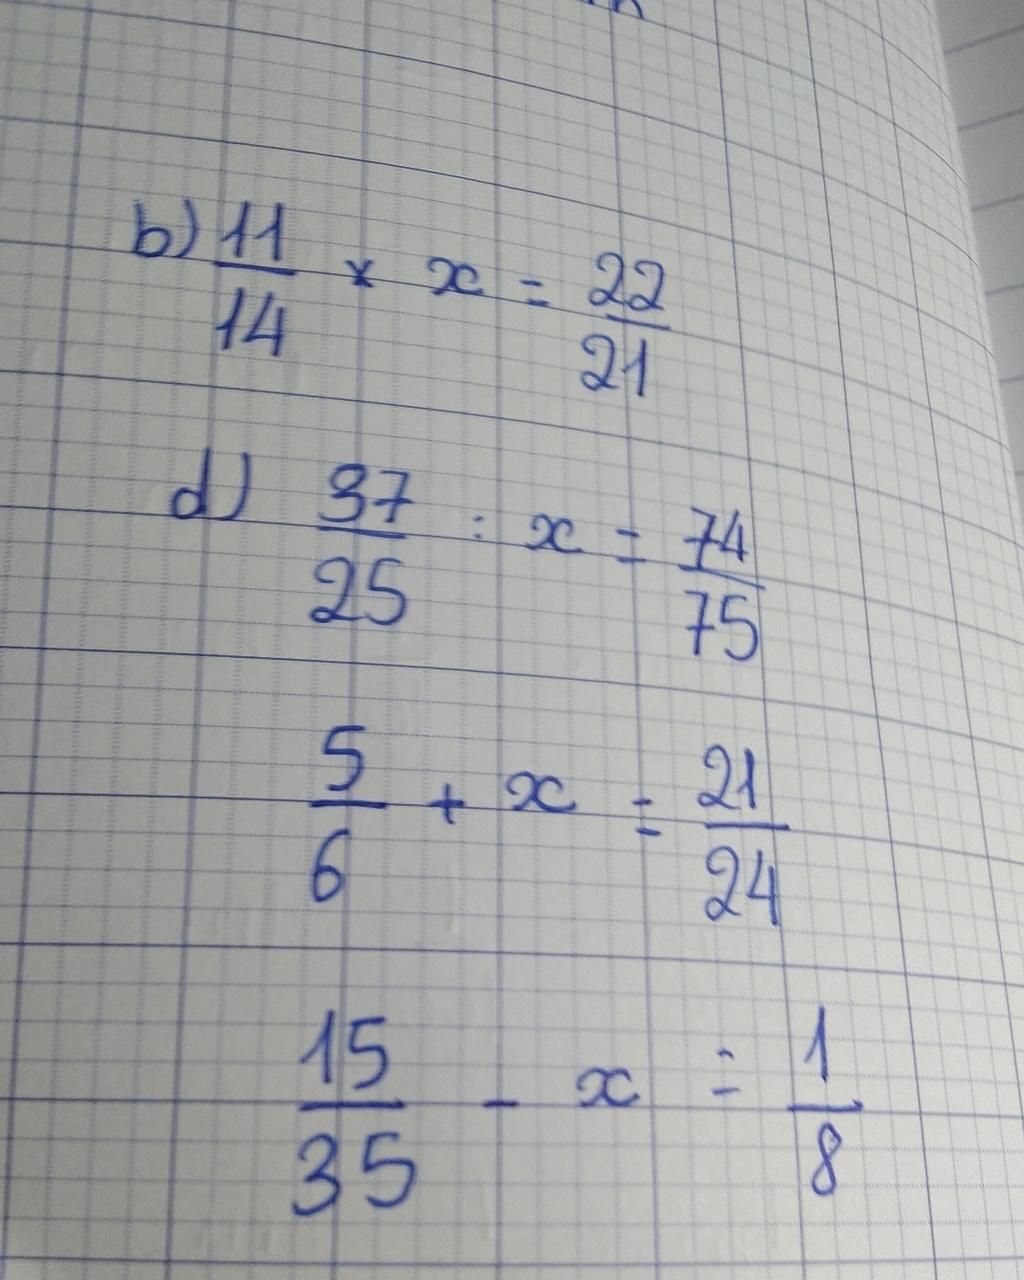 b) 11/14 × x = 22/21
d) 37/25 : x = 74/75
5/6 + x = 21/24
15/35 - x = 1/8